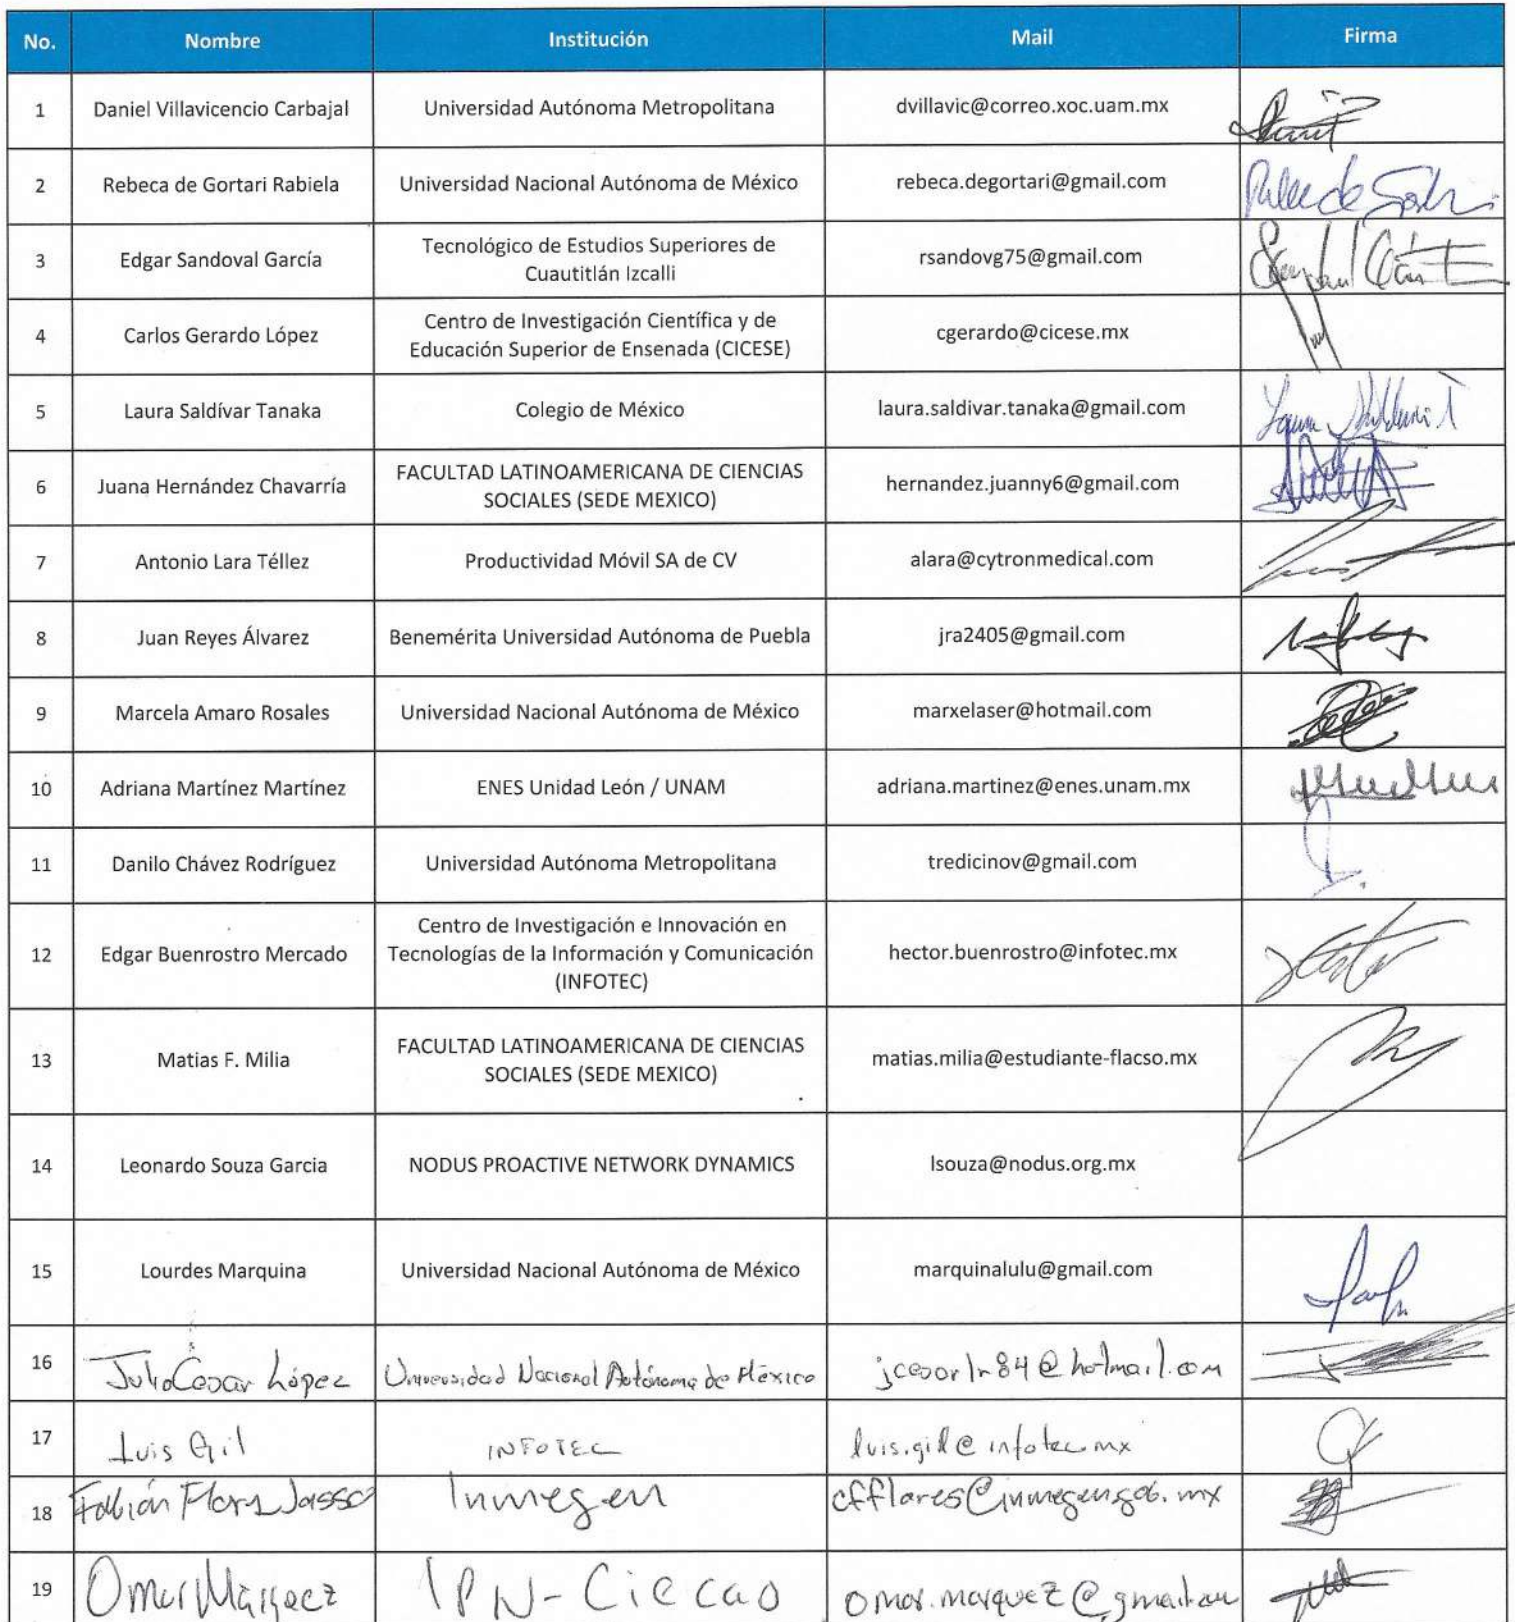 No. Nombre Institución Mail Firma
1 Daniel Villavicencio Carbajal Universidad Autónoma Metropolitana dvillavic@correo.xoc.uam.mx
2 Rebeca de Gortari Rabiela Universidad Nacional Autónoma de México rebeca.degortari@gmail.com
3 Edgar Sandoval García Tecnológico de Estudios Superiores de
Cuautitlán Izcalli rsandovg75@gmail.com
4 Carlos Gerardo López Centro de Investigación Científica y de
Educación Superior de Ensenada (CICESE) cgerardo@cicese.mx
5 Laura Saldívar Tanaka Colegio de México laura.saldivar.tanaka@gmail.com
6 Juana Hernández Chavarría FACULTAD LATINOAMERICANA DE CIENCIAS
SOCIALES (SEDE MEXICO) hernandez.juanny6@gmail.com
7 Antonio Lara Téllez Productividad Móvil SA de CV alara@cytronmedical.com
8 Juan Reyes Álvarez Benemérita Universidad Autónoma de Puebla jra2405@gmail.com
9 Marcela Amaro Rosales Universidad Nacional Autónoma de México marxelaser@hotmail.com
10 Adriana Martínez Martínez ENES Unidad León / UNAM adriana.martinez@enes.unam.mx
11 Danilo Chávez Rodríguez Universidad Autónoma Metropolitana tredicinov@gmail.com
12 Edgar Buenrostro Mercado Centro de Investigación e Innovación en
Tecnologías de la Información y Comunicación
(INFOTEC) hector.buenrostro@infotec.mx
13 Matias F. Milia FACULTAD LATINOAMERICANA DE CIENCIAS
SOCIALES (SEDE MEXICO) matias.milia@estudiante-flacso.mx
14 Leonardo Souza Garcia NODUS PROACTIVE NETWORK DYNAMICS lsouza@nodus.org.mx
15 Lourdes Marquina Universidad Nacional Autónoma de México marquinalulu@gmail.com
16 Julio Cesar López Universidad Nacional Autónoma de México jcesarlr84@hotmail.com
17 Luis Gil INFOTEC luis.gil@infotec.mx
18 Fabián Flores Jasso Inmegen cfflores@inmegen.gob.mx
19 Omar Márquez IPN-Ciecas omar.marquez@gmail.com